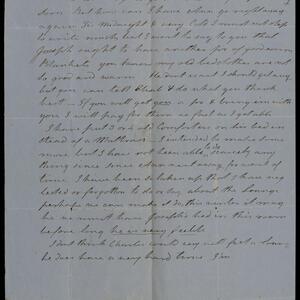 soon. But how can I have when go right away
again. Tis Midnight & very Cold I must not stop
to write much, but I want to say to you that
Joseph ought to have another pair of good warm
Blankets you know my old bedclothes are not
so good and warm. He dont want I should get any
but you can tell Eliab & do what you think
best. If you will get you a pr & bring em with
you I will pay for them as fast as I get able
I have put 3 or 4 old Comforters on his bed in
stead of a Mattrass. I intended to make some
more but I have not been able to do scarcely any
thing since some advancement any for want of
time I have been so taken up that I have neg
lected or forgotten to do or say about the Lounge
perhaps we can make it do this winter it may
be we must have Josephs bed in this room
before long he is very feeble
I dont think Charles could very well get a
he does have a very hard time. I'm